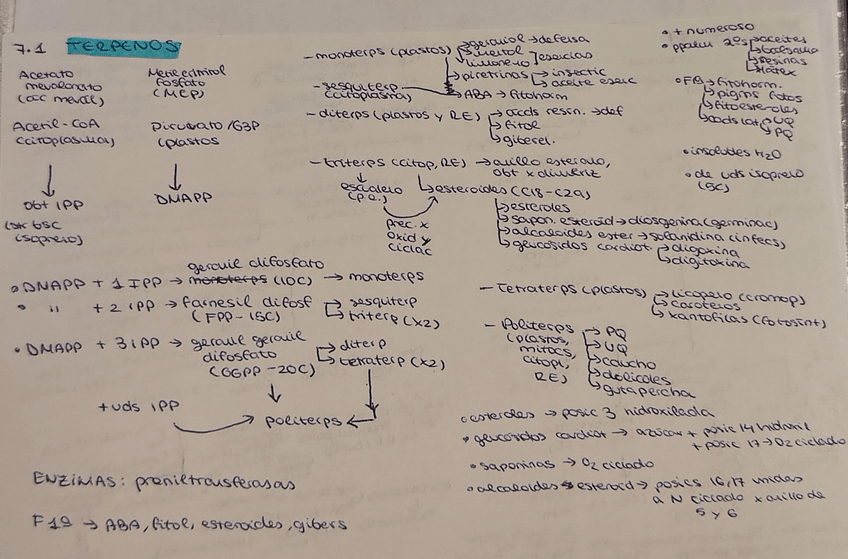 7.1 TERPENOS
Acetato
mevalonato
(ac meval)
Acetil-CoA
(citoplasma)
obt IPP
(isopreno)
Metileritritol
fosfato
(MEP)
Piruvato /G3P
(plastos
DMAPP
• DMAPP + 1 IPP → geranil difosfato (10C) → monoterps
• " + 2 IPP → farnesil difosf → sesquiterp
(FPP-15C) → triterp (x2)
• DMAPP + 3 IPP → geranil geranil → diterp
difosfato → tetraterp (x2)
(GGPP-20C)
+ uds IPP → politerps ←
ENZIMAS: preniltransferasas
→ ABA, fitol, esteroides, gibers
- monoterps (plastos) → geraniol → defensa
→ mentol
limoneno ] esencias
→ piretrinas → insectic
→ aceite esenc
- sesquiterp
(citoplasma) → ABA → fitohorm
- diterps (plastos y RE) → acds resin. → def
→ fitol
→ giberel.
- triterps (citop, RE) → anillo esterano,
obt x dimeriz
escualeno
prec. x
oxid y
ciclac
→ esteroides (C18-C29)
→ esteroles
→ sapon. esteroid → diosgenina (germinac)
→ alcaloides ester → solanidina (infecs)
→ glucosidos cardiot. → digoxina
→ digitoxina
- Tetraterps (plastos) → licopeno (cromop)
→ carotenos
→ xantofilas (fotosint)
- Politerps → PQ
(plastos, → UQ
mitocs, → caucho
citopl, → dolicoles
RE) → gutapercha
• esteroles → posic 3 hidroxilada
• glucosidos cardiot → azúcar + posic 14 hidroxil
+ posic 17 → O2 ciclado
• saponinas → O2 ciclado
• alcaloides esteroid → posics 16, 17 unidas
a N ciclado x anillo de
5 y 6
• + numeroso
• ppalm 2os → aceites
→ resinas
→ látex
→ fitohorm.
→ pigms fotos
→ fitoesteroles
→ UQ
→ PQ
• insolubles H2O
• de uds isopreno
(5C)